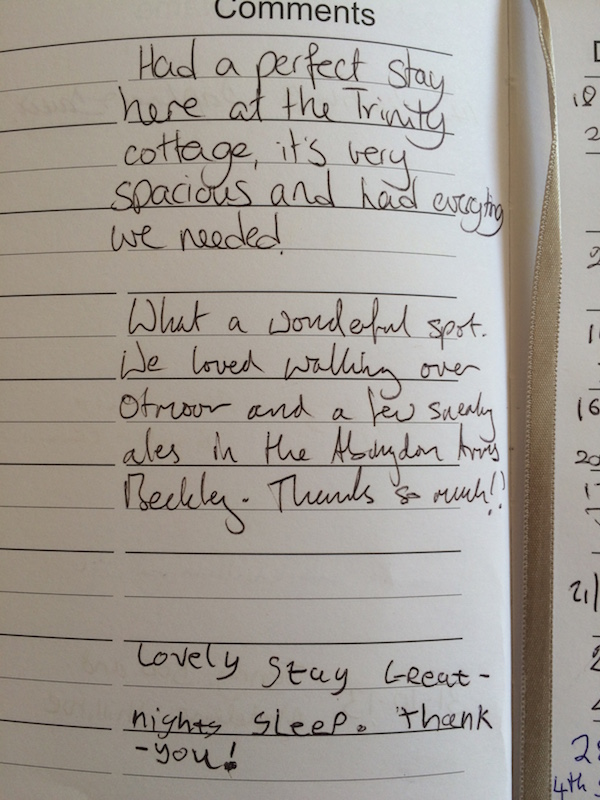 Comments
Had a perfect stay
here at the Trinity
cottage, it's very
spacious and had everything
we needed.
What a wonderful spot.
We loved walking over
Otmoor and a few sneaky
ales in the Abingdon Arms
Beckley. Thanks so much!!
Lovely Stay Great-
nights sleep. Thank
-you!
D
18
2
2
1
16
20
1
21/
2
4
28
4th